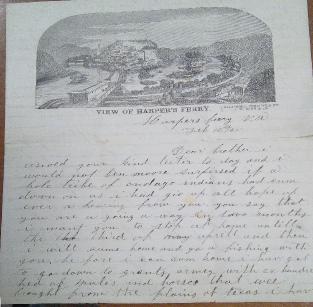 VIEW OF HARPER'S FERRY.
Harpers fery VA
Feb
Dear brother i
your kind letter to day and i
would not ben moore surprised if a
hole tribe of indians had
down on us i had giv up all hope of
ever a hearing from you you say that
you are a going a way in two months
i want you to stop at home untill
the third of aprill and then
i will come home and go a fishing with
you be fore i can com home i hav got
to go down to grants armey with six hundred
hed of mules and horses that wer
brought from the plains of texas i hav